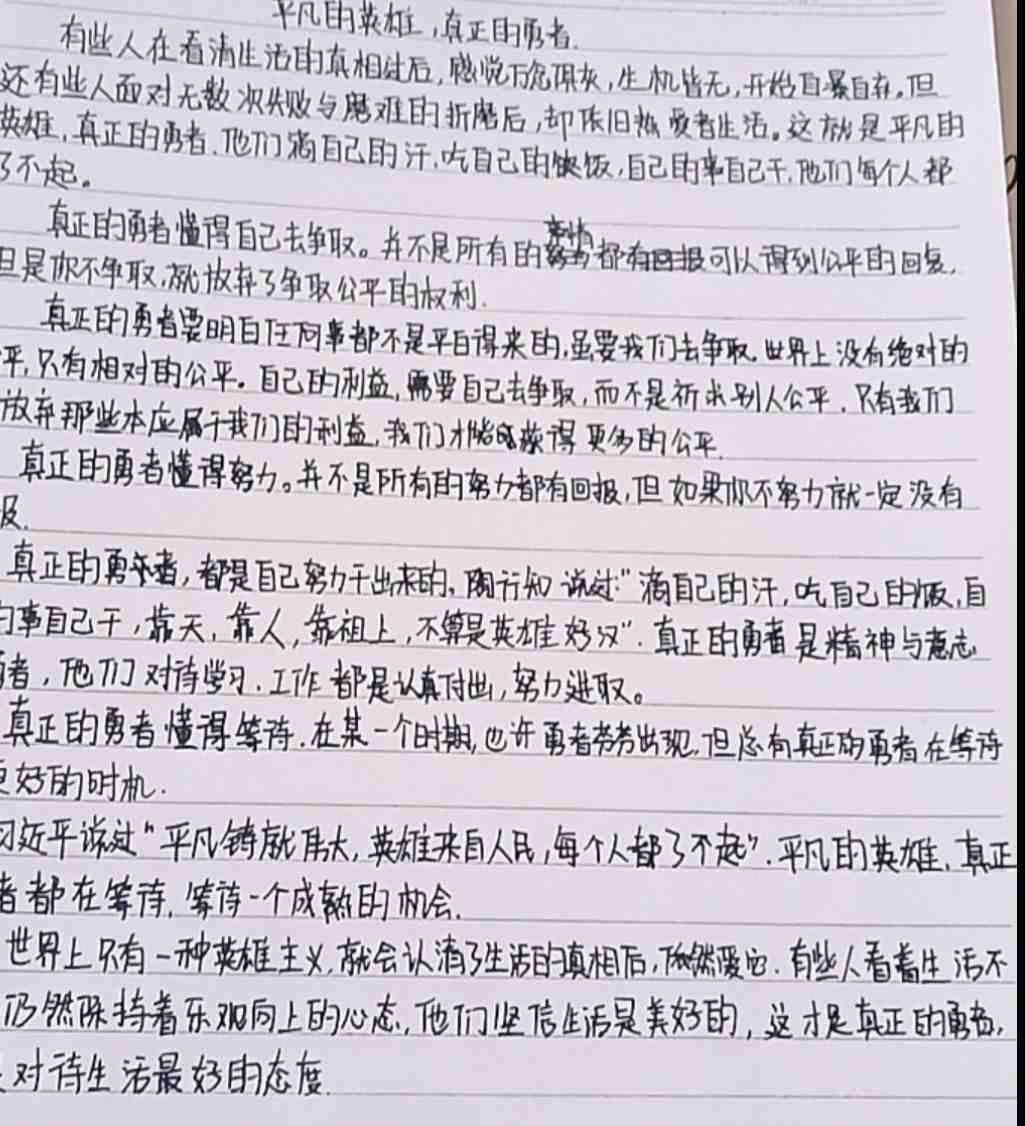 平凡的英雄,真正的勇者.
有些人在看清生活的真相过后,感觉万念俱灰,生机皆无,开始自暴自弃,但
还有些人面对无数次失败与磨难的折磨后,却依旧热爱着生活。这就是平凡的
英雄,真正的勇者.他们滴自己的汗,吃自己的饭,自己的事自己干,他们每个人都
了不起。
真正的勇者懂得自己去争取。并不是所有的事情都可以得到公平的回复,
但是你不争取,就放弃了争取公平的权利.
真正的勇者要明白任何事都不是平白得来的,虽要我们去争取.世界上没有绝对的
平,只有相对的公平。自己的利益,需要自己去争取,而不是祈求别人公平.只有我们
放弃那些本应属于我们的利益,我们才能获得更多的公平.
真正的勇者懂得努力。并不是所有的努力都有回报,但如果你不努力就一定没有
报.
真正的勇者,都是自己努力干出来的,陶行知说过:"滴自己的汗,吃自己的饭,自
的事自己干,靠天,靠人,靠祖上,不算是英雄好汉".真正的勇者是精神与意志
者,他们对待学习.工作都是认真付出,努力进取。
真正的勇者懂得等待.在某一个时期,也许勇者劳劳出现,但总有真正的勇者在等待
更好的时机.
习近平说过"平凡铸就伟大,英雄来自人民,每个人都了不起".平凡的英雄,真正
者都在等待,等待一个成熟的机会.
世界上只有一种英雄主义,就会认清了生活的真相后,依然爱它.有些人看着生活不
仍然保持着乐观向上的心态,他们坚信生活是美好的,这才是真正的勇者,
对待生活最好的态度.